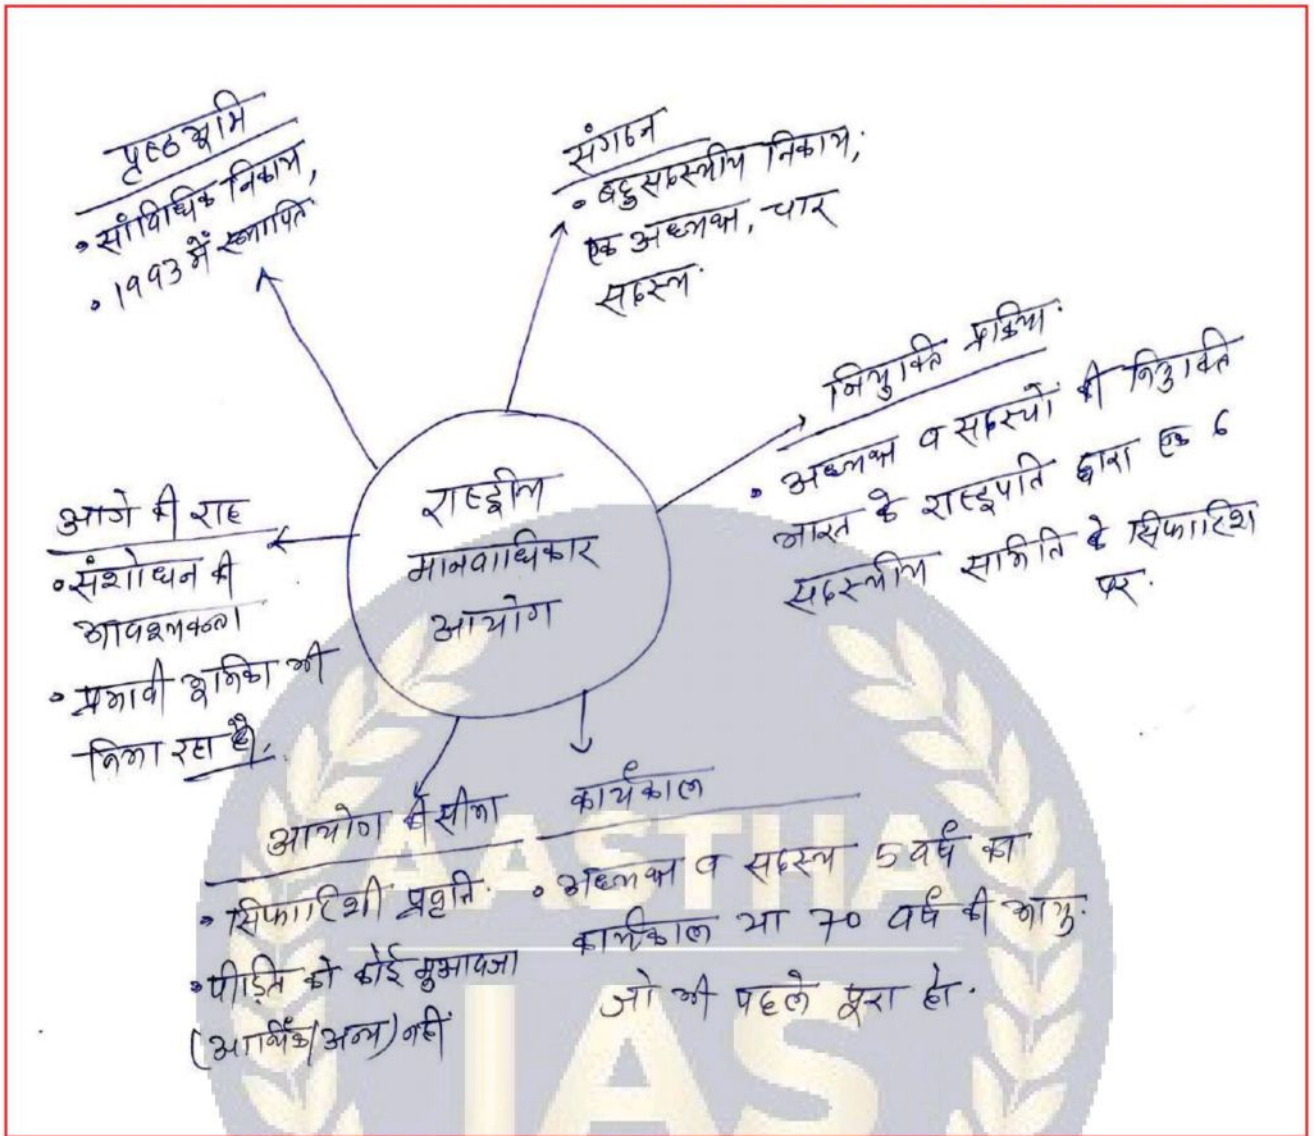 पृष्ठभूमि
• सांविधिक निकाय,
• 1993 में स्थापित.
संगठन
• बहुसदस्यीय निकाय,
एक अध्यक्ष, चार
सदस्य.
नियुक्ति प्रक्रिया.
• अध्यक्ष व सदस्यों की नियुक्ति
भारत के राष्ट्रपति द्वारा एक 6
सदस्यीय समिति के सिफारिश
पर.
राष्ट्रीय
मानवाधिकार
आयोग
आगे की राह
• संशोधन की
आवश्यकता
• प्रभावी भूमिका भी
निभा रहा है.
आयोग की सीमा
• सिफारिशी प्रवृति.
• पीड़ित को कोई मुआवजा
(आर्थिक/अन्य) नहीं
कार्यकाल
• अध्यक्ष व सदस्य 5 वर्ष का
कार्यकाल या 70 वर्ष की आयु.
जो भी पहले पूरा हो.
AASTHA
IAS